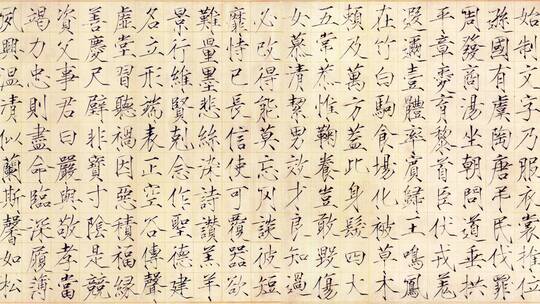 始制文字乃服衣裳推位
遜國有虞陶唐弔民伐罪
周發商湯坐朝問道垂拱
平章愛育黎首臣伏戎羌
遐邇壹體率賓歸王鳴鳳
在竹白駒食場化被草木
賴及萬方蓋此身髮四大
五常恭惟鞠養豈敢毀傷
女慕清絜男效才良知過
必改得能莫忘罔談彼短
靡恃己長信使可覆器欲
難量墨悲絲染詩讚羔羊
景行維賢剋念作聖德建
名立形端表正空谷傳聲
虛堂習聽禍因惡積福緣
善慶尺璧非寶寸陰是競
資父事君曰嚴與敬孝當
竭力忠則盡命臨深履薄
夙興溫清似蘭斯馨如松